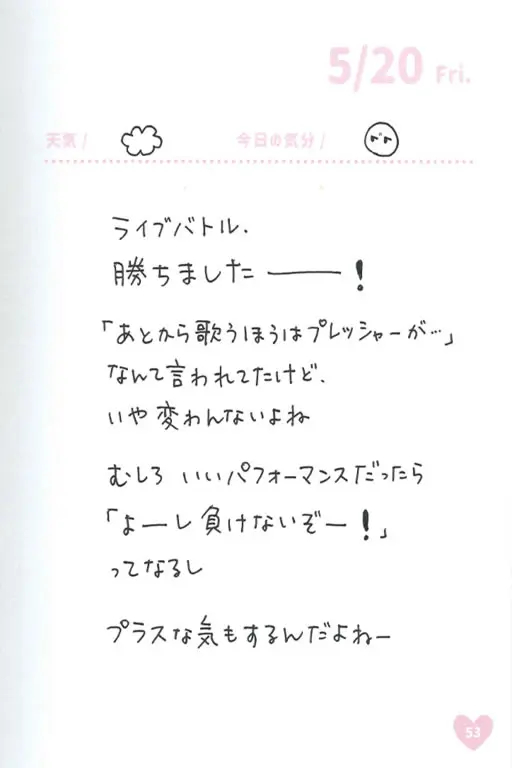 5/20 Fri.
天気/
今日の気分/
ライブバトル、
勝ちました――!
「あとから歌うほうはプレッシャーが…」
なんて言われてたけど、
いや変わんないよね
むしろ いいパフォーマンスだったら
「よーし負けないぞー!」
ってなるし
プラスな気もするんだよねー
53